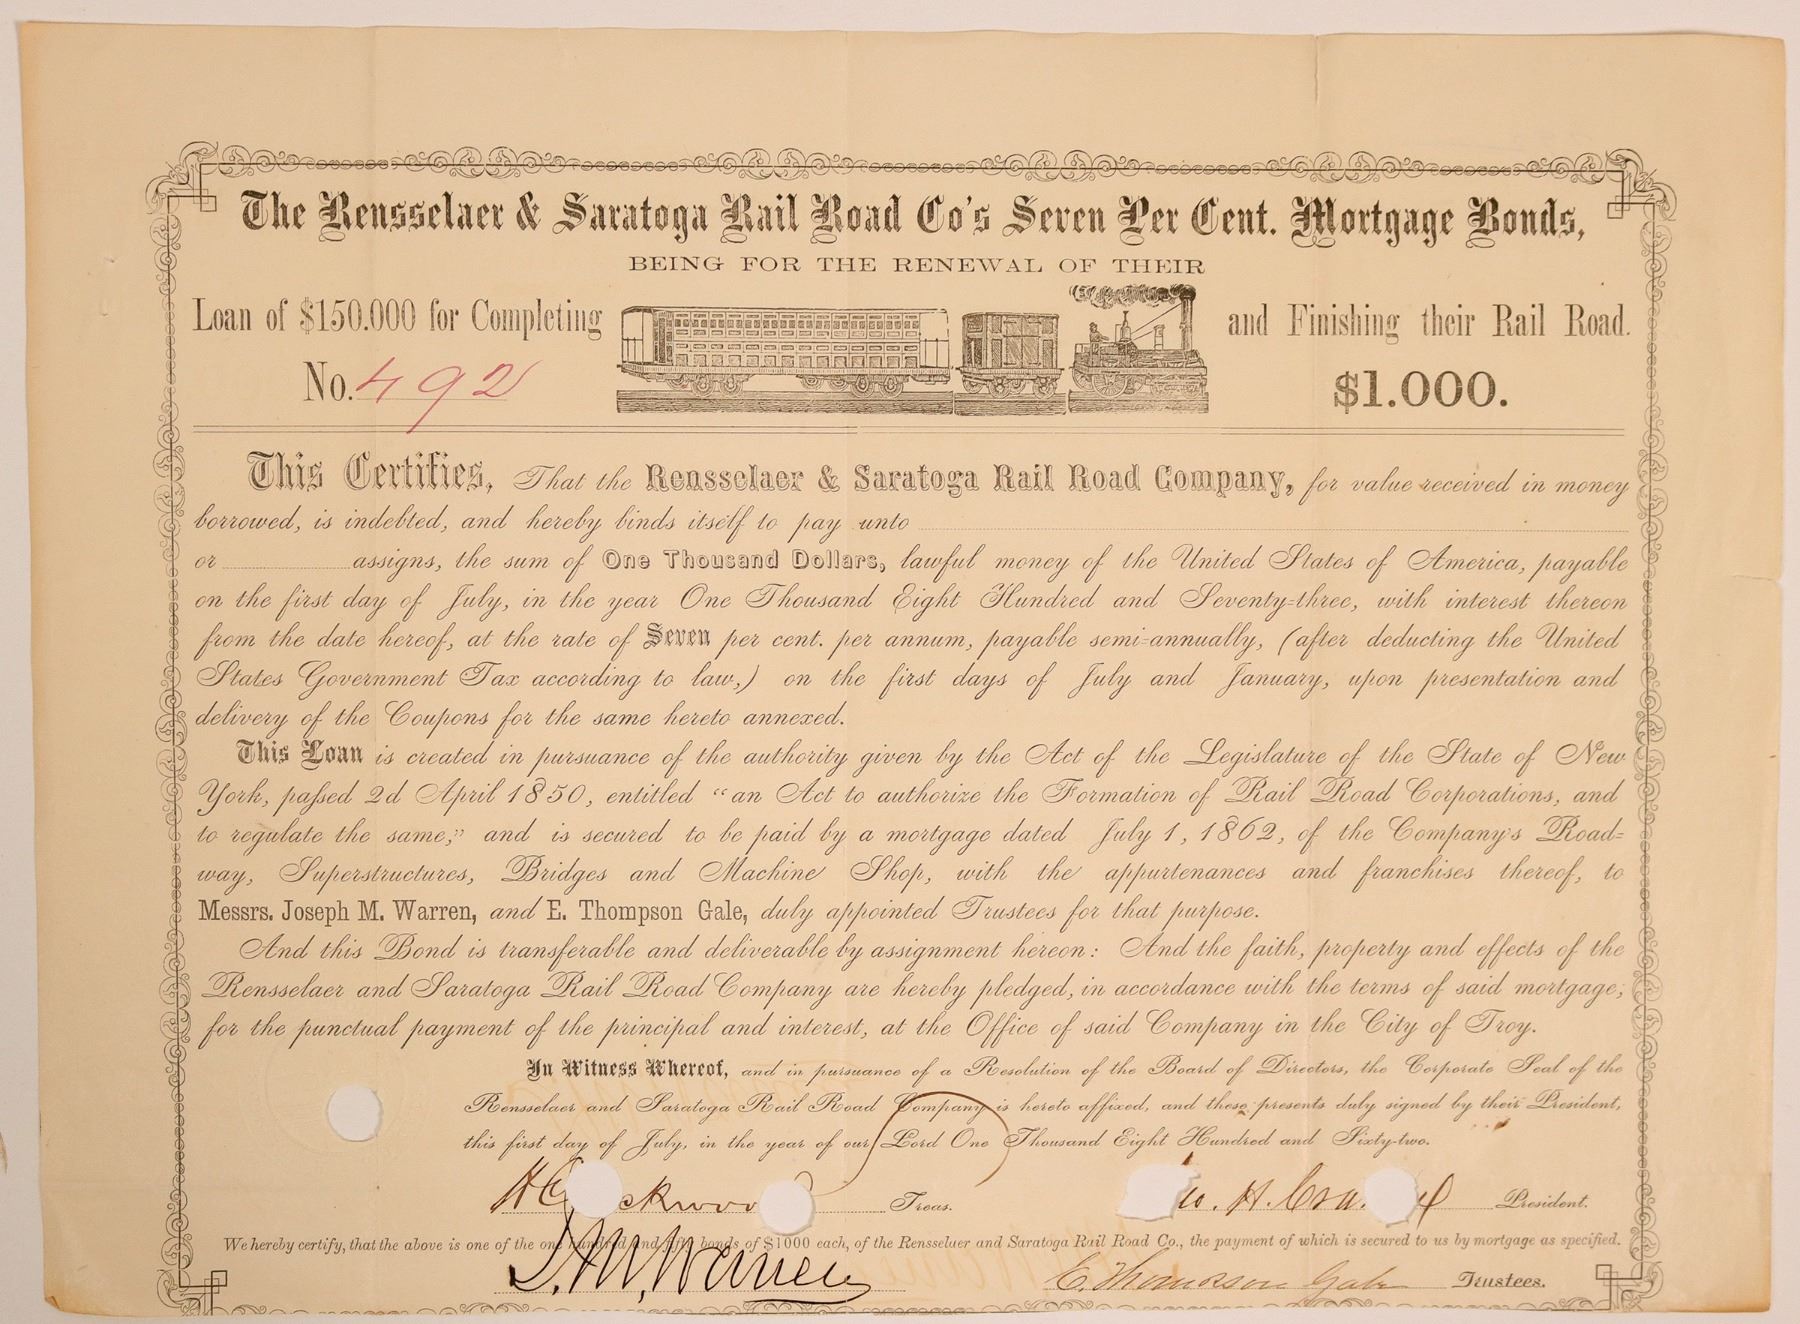 The Rensselaer & Saratoga Rail Road Co's Seven Per Cent. Mortgage Bonds,
BEING FOR THE RENEWAL OF THEIR
Loan of $150.000 for Completing and Finishing their Rail Road.
No. 492 $1.000.
This Certifies, That the Rensselaer & Saratoga Rail Road Company, for value received in money
borrowed, is indebted, and hereby binds itself to pay unto
or assigns, the sum of One Thousand Dollars, lawful money of the United States of America, payable
on the first day of July, in the year One Thousand Eight Hundred and Seventy-three, with interest thereon
from the date hereof, at the rate of Seven per cent. per annum, payable semi-annually, (after deducting the United
States Government Tax according to law,) on the first days of July and January, upon presentation and
delivery of the Coupons for the same hereto annexed.
This Loan is created in pursuance of the authority given by the Act of the Legislature of the State of New
York, passed 2d April 1850, entitled "an Act to authorize the Formation of Rail Road Corporations, and
to regulate the same;" and is secured to be paid by a mortgage dated July 1, 1862, of the Company's Road-
way, Superstructures, Bridges and Machine Shop, with the appurtenances and franchises thereof, to
Messrs. Joseph M. Warren, and E. Thompson Gale, duly appointed Trustees for that purpose.
And this Bond is transferable and deliverable by assignment hereon: And the faith, property and effects of the
Rensselaer and Saratoga Rail Road Company are hereby pledged, in accordance with the terms of said mortgage,
for the punctual payment of the principal and interest, at the Office of said Company in the City of Troy.
In Witness Whereof, and in pursuance of a Resolution of the Board of Directors, the Corporate Seal of the
Rensselaer and Saratoga Rail Road Company is hereto affixed, and these presents duly signed by their President,
this first day of July, in the year of our Lord One Thousand Eight Hundred and Sixty-two.
Treas. H. President.
We hereby certify, that the above is one of the one hundred and fifty bonds of $1000 each, of the Rensselaer and Saratoga Rail Road Co., the payment of which is secured to us by mortgage as specified.
J. M. Warren E. Thompson Gale Trustees.